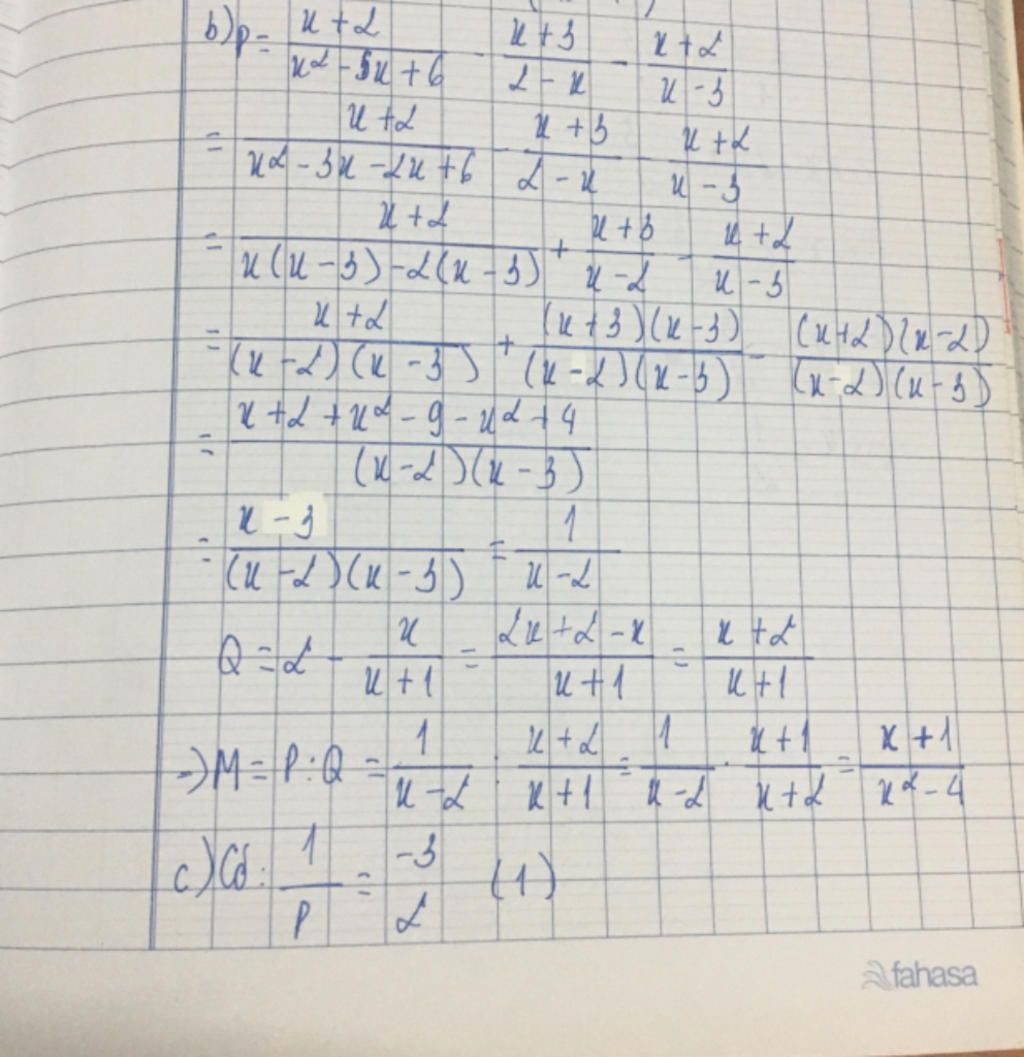 b) P = (x+2)/(x²-5x+6) - (x+3)/(2-x) - (x+2)/(x-3)
= (x+2)/(x²-3x-2x+6) - (x+3)/(2-x) - (x+2)/(x-3)
= (x+2)/(x(x-3)-2(x-3)) + (x+3)/(x-2) - (x+2)/(x-3)
= (x+2)/((x-2)(x-3)) + ((x+3)(x-3))/((x-2)(x-3)) - ((x+2)(x-2))/((x-2)(x-3))
= (x+2+x²-9-x²+4)/((x-2)(x-3))
= (x-3)/((x-2)(x-3)) = 1/(x-2)
Q = 2 - x/(x+1) = (2x+2-x)/(x+1) = (x+2)/(x+1)
=) M = P:Q = 1/(x-2) : (x+2)/(x+1) = 1/(x-2) . (x+1)/(x+2) = (x+1)/(x²-4)
c) Có: 1/P = -3/2 (1)
fahasa